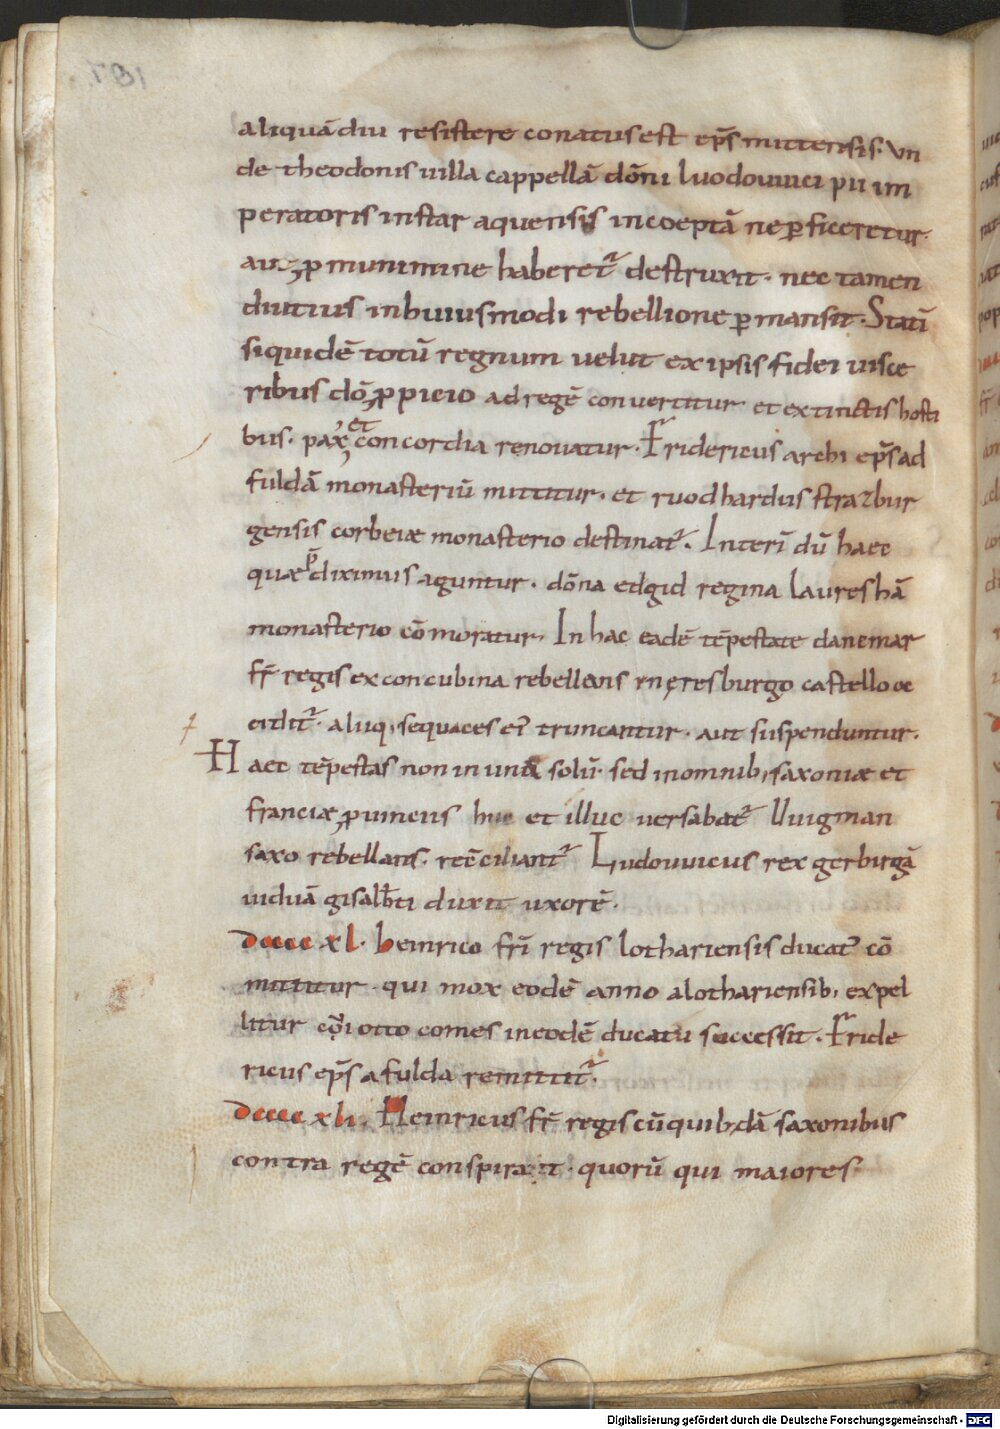 aliquā diu resistere conatus est ep̄s mittensis. Vn
de theodonis uilla cappellā dōni luodouuici pii im
peratoris instar aquensis incoeptā ne ꝑficeretur.
aut ꝓ munimine haberet᷑ destruxit. nec tamen
diutius in huiusmodi rebellione ꝑmansit. Statī
siquidē totū regnum uelut ex ipsis fidei uisce
ribus dō ꝓpicio ad regē conuertitur et extinctis hosti
bus. pax et concordia renouatur. Fridericus archi ep̄s ad
fuldā monasteriū mittitur. et ruodhardus strazbur
gensis corbeiæ monasterio destinat᷑. Interī dū haec
quæ p̄diximus aguntur. dōna edgid regina laureshā
monasterio cōmoratur. In hac eadē tēpestate danemar
fr̄ regis ex concubina rebellans in ęresburgo castello oc
cidit᷑. aliiq; sequaces ei᷒ truncantur. aut suspenduntur.
Haec tēpestas non in unā solū. sed in omnib; saxoniæ et
franciæ ꝓuinciis huc et illuc uersabat᷑ Uuigman
saxo rebellans. recc̄iliant᷑ Ludouuicus rex gerbirgā
uiduā gisalb̄ti duxit uxorē.
dcccc xl. heinrico fr̄i regis lothariensis ducat᷒ cō
mittitur. qui mox eodē anno a lothariensib; expel
litur cui otto comes in eodē ducatu successit. Fride
ricus ep̄s a fulda remittit᷑.
dcccc xli. Heinricus fr̄ regis cū quib;dā saxonibus
contra regē conspirauit. quorū qui maiores
Digitalisierung gefördert durch die Deutsche Forschungsgemeinschaft - DFG